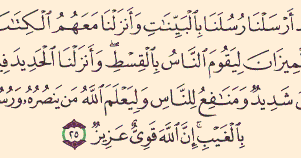 أَرْسَلْنَا رُسُلَنَا بِٱلْبَيِّنَٰتِ وَأَنزَلْنَا مَعَهُمُ ٱلْكِتَٰبَ
مِيزَانَ لِيَقُومَ ٱلنَّاسُ بِٱلْقِسْطِ ۖ وَأَنزَلْنَا ٱلْحَدِيدَ فِي
شَدِيدٌ وَمَنَٰفِعُ لِلنَّاسِ وَلِيَعْلَمَ ٱللَّهُ مَن يَنصُرُهُۥ وَرُسُ
بِٱلْغَيْبِ ۚ إِنَّ ٱللَّهَ قَوِىٌّ عَزِيزٌ ٢٥